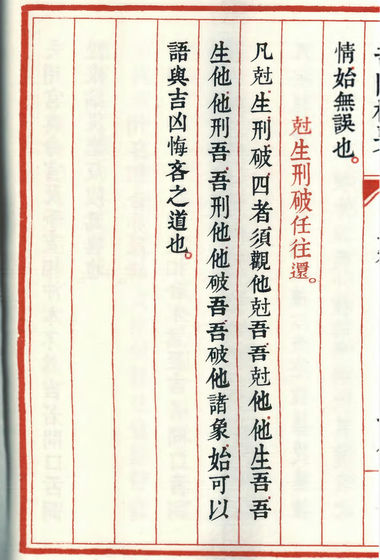 情始無誤也。
尅生刑破任往還。
凡尅生刑破四者須觀他尅吾吾尅他他生吾吾
生他他刑吾吾刑他他破吾吾破他諸象始可以
語與吉凶悔吝之道也。